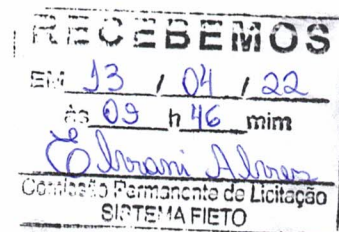 RECEBEMOS
EM 13 / 04 / 22
às 09 h 46 mim
Alves
Comissão Permanente de Licitação
SISTEMA FIETO